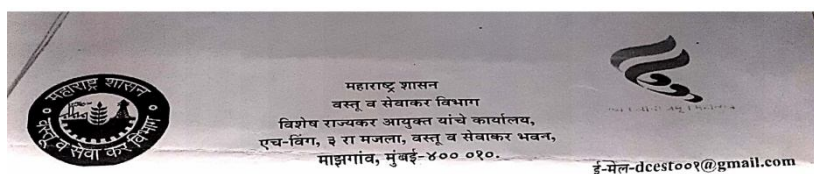 महाराष्ट्र शासन
वस्तू व सेवा कर विभाग
महाराष्ट्र शासन
वस्तू व सेवाकर विभाग
विशेष राज्यकर आयुक्त यांचे कार्यालय,
एच-विंग, ३ रा मजला, वस्तू व सेवाकर भवन,
माझगांव, मुंबई-४०० ०१०.
ई-मेल-dcest००१@gmail.com